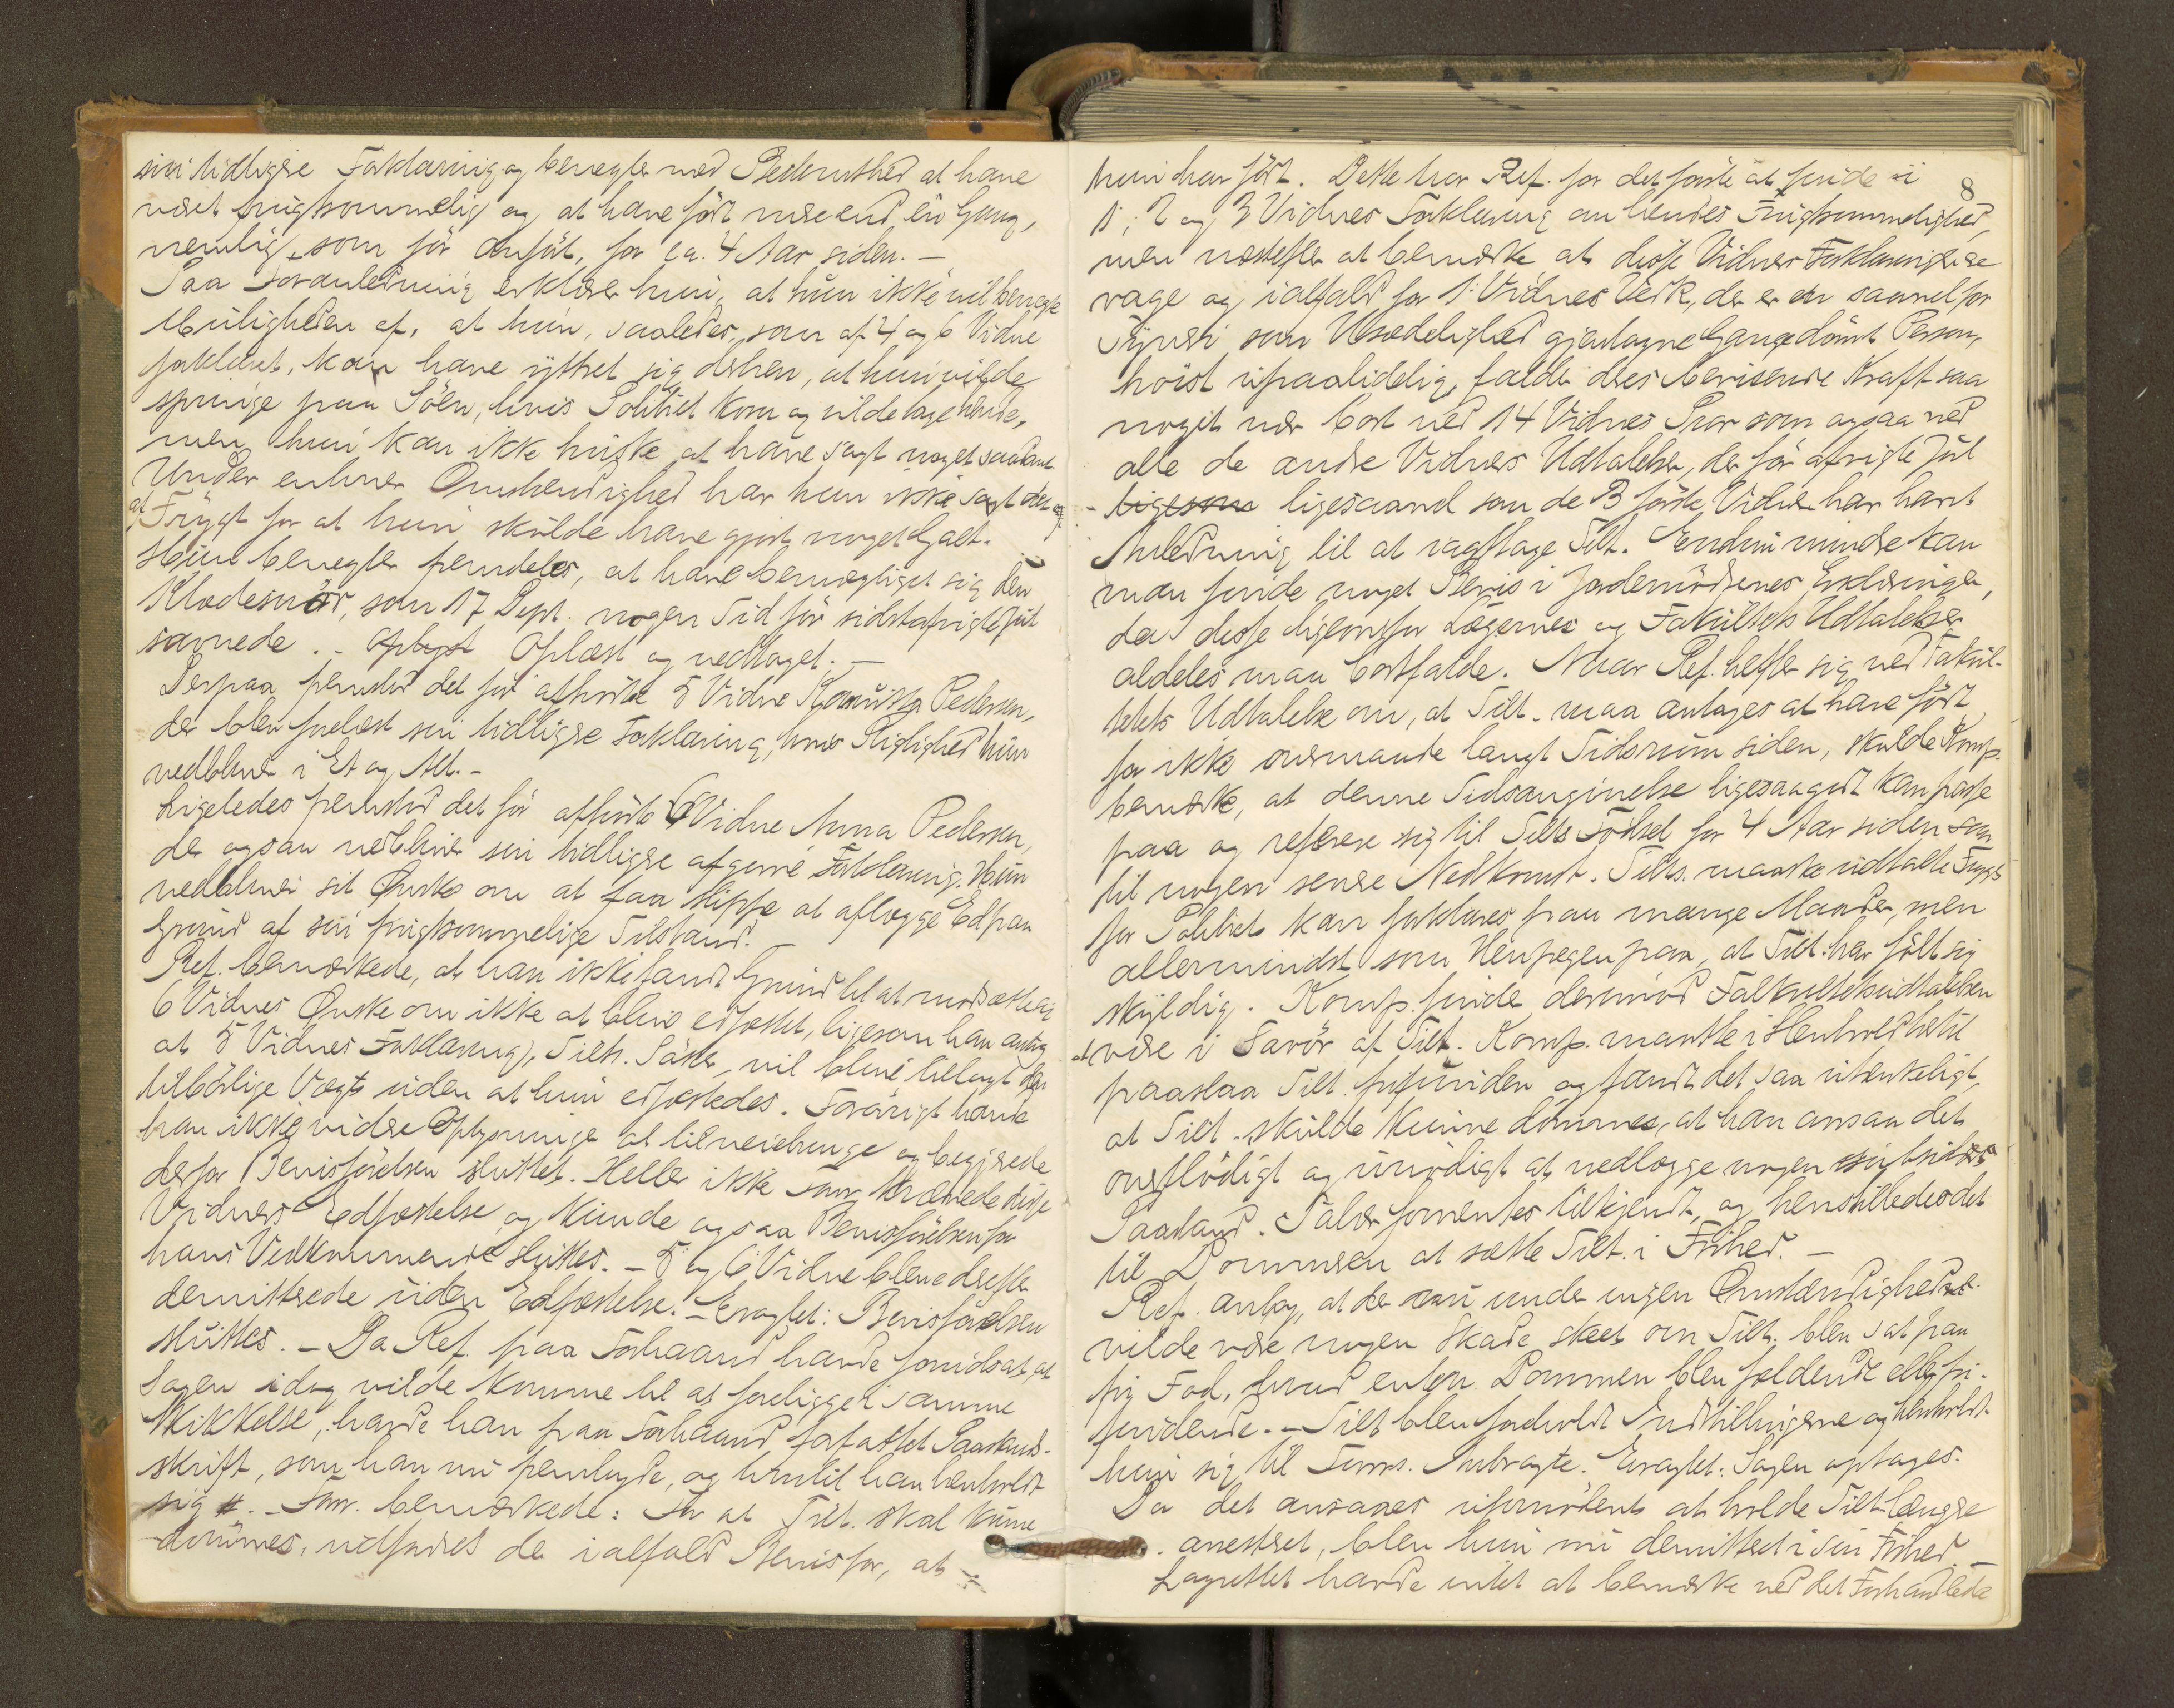 sin tidligere Forklaring og benegter med Bestemthed at have
været frugtsommelig og at have født mere end én Gang,
nemlig, som før anført, for ca. 4 Aar siden. –
Paa Foranledning erklærer hun, at hun ikke vil benegte
Muligheden af, at hun, saaledes som af 4 og 6 Vidne
forklaret, kan have yttret sig derhen, at hun vilde
springe paa Søen, hvis Politiet kom og vilde tage hende,
men hun kan ikke huske at have sagt noget saadant
Under enhver Omstændighed har hun ikke sagt det
af Frygt for at hun skulde have gjort noget Galt.
Hun benegter fremdeles, at have bemægtiget sig den
Klædesnør, som 17 Sept. nogen Tid før sidstafvigte Jul
savnede. - Oplyst Oplæst og vedtaget. –
Derpaa fremstod det før afhørte 5 Vidne Pedersen,
der blev forelæst sin tidligere Forklaring, hvis Rigtighed hun
vedblev i Et og Alt. –
Ligeledes fremstod det før afhørte 6 Vidne Anna Pedersen,
der ogsaa vedbliver sin tidligere afgivne Forklaring. Hun
vedblever sit Ønske om at faa slippe at aflægge Ed paa
Grund af sin frugtsommelige Tilstand. –
Ref. bemærkede, at han ikke fandt Grund til at modsætte sig
6 Vidnes Ønske om ikke at blive edfæstet, ligesom han antog
at 5 Vidnes Forklaring, Tilts. Søster, vil blive tillagt den
tilbørlige Vægt uden at hun edfæstedes. Forøvrigt havde
han ikke videre Oplysninge at tilveiebringe og begjærede
derfor Bevisførelsen sluttet. Heller ikke Forsv. krævede disse
Vidners Edfæstelse og kunde ogsaa Bevisførelsen for
hans Vedkommende sluttes. – 5 og 6 Vidne bleve derefter
demitterede uden Edfæstelse. – Eragtet: Bevisførelsen
sluttes. – Da Ref. paa Forhaand havde forudsat, at
Sagen idag vilde komme til at foreligge i samme
Skikkelse, havde han paa Forhaand forfattet Paastands-
skrift, som han nu fremlagde, og hvortil han henholdt
sig. – Forsv. bemærkede: For at Tilt. skal kunne
dømmes, udfordres der ialfald Bevis for, at
8
hun har født. Dette har Ref. for det første at finde i
1, 2 og 3 Vidnes Forklaring om hendes Frugtsommelighed,
men næstefter at bemærke at disse Vidners Forklaring er
vage og ialfald for 1. Vidnes Værk, der er en saavel for
Tyveri som Usædelighed gjentagne Gange dømt Person,
høist upaalidelig, falder deres bevisende Kraft saa
noget nær bort ved 14 Vidnes Svar som ogsaa ved
alle de andre Vidners Udtalelser, der før afvigte Jul
- ligesom ligesaavel som de 3 første Vidner har havt
Anledning til at iagttage Tilt. Endnu mindre kan
man finde noget Bevis i Jordemødrenes Erklæringer,
da disse ligeoverfor Lægernes og Fakultets Udtalelser
aldeles maa bortfalde. Naar Ref. hefter sig ved Fakul-
tetets Udtalelse om, at Tilt. maa antages at have født
for ikke overmaade langt Tidsrum siden, skulde Komp.
bemærke, at denne Tidsangivelse ligesaagodt kan passe
paa og referere sig til Tilts Fødsel for 4 Aar siden som
til nogen senere Nedkomst. Tilts. maaske udtalte Frygt
for Politiet kan forklares paa mange Maader, men
allermindst som Henpegen paa, at Tilt. har følt sig
skyldig. Komp. finder derimod Falkultetsudtalelsen
at være i Favør af Tilt. Komp. maatte i Henhold hertil
paastaa Tilt. frifunden og fandt det saa utænkeligt,
at Tilt. skulde kunne dømmes, at han ansaa det
overflødigt og unødigt at nedlægge nogen subsidiær
Paastand. Salær formentes tilkjendt, og henstilledes det
til Dommeren at sætte Tilt. i Frihed. –
Ref. antog, at der nu under ingen Omstændigheder
vilde være nogen Skade skeet om Tilt. blev sat paa
fri Fod, hvad enten Dommen blev fældende eller fri-
findende. – Tilt. blev foreholdt Indstillingerne og henholdt
hun sig til Forsv. Anbragte. Eragtet: Sagen optages.
Da det ansaaes ufornødent at holde Tilt. længere
arresteret, blev hun nu demitteret i sin Frihed. –
Lagrettet havde intet at bemærke ved det Forhandlede